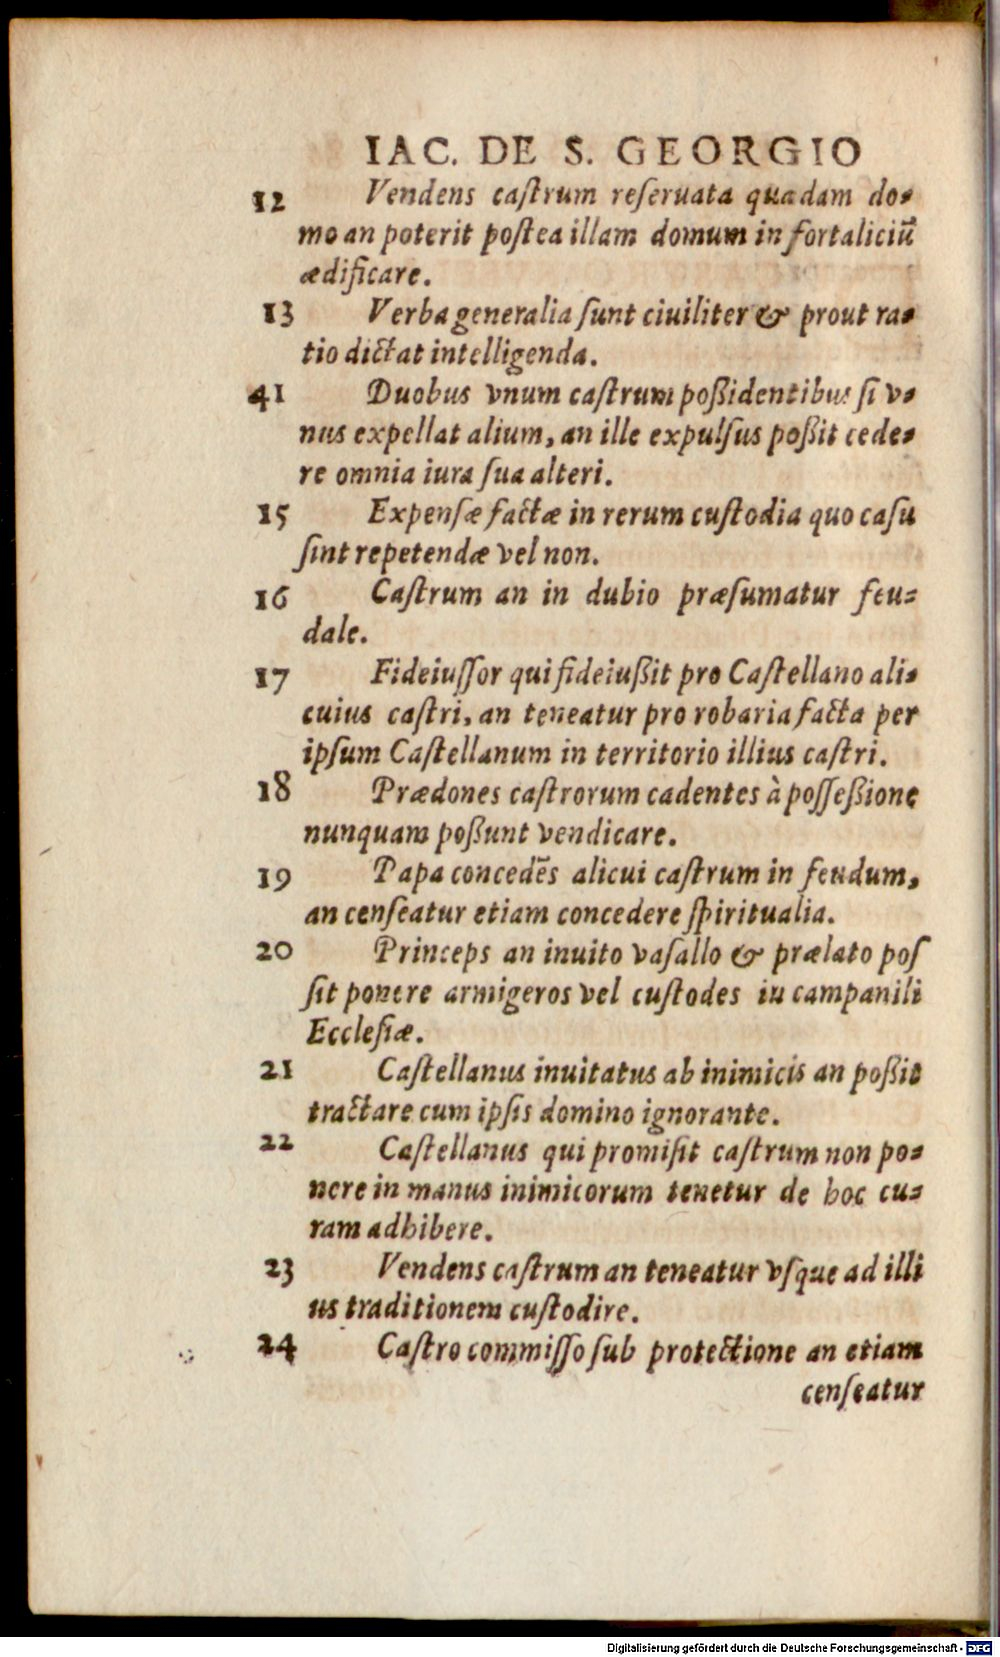 IAC. DE S. GEORGIO
12 Vendens caſtrum reſeruata quadam do-
mo an poterit poſtea illam domum in fortaliciū
ædificare.
13 Verba generalia ſunt ciuiliter & prout ra-
tio dictat intelligenda.
41 Duobus vnum caſtrum poßidentibus ſi v-
nus expellat alium, an ille expulſus poßit cede-
re omnia iura ſua alteri.
15 Expenſæ factæ in rerum cuſtodia quo caſu
ſint repetendæ vel non.
16 Caſtrum an in dubio præſumatur feu-
dale.
17 Fideiuſſor qui fideiußit pro Caſtellano ali-
cuius caſtri, an teneatur pro robaria facta per
ipſum Caſtellanum in territorio illius caſtri.
18 Prædones caſtrorum cadentes à poſſeßione
nunquam poßunt vendicare.
19 Papa concedēs alicui caſtrum in feudum,
an cenſeatur etiam concedere ſpiritualia.
20 Princeps an inuito vaſallo & prælato poſ
ſit ponere armigeros vel cuſtodes iu campanili
Eccleſiæ.
21 Caſtellanus inuitatus ab inimicis an poßit
tractare cum ipſis domino ignorante.
22 Caſtellanus qui promiſit caſtrum non po-
nere in manus inimicorum tenetur de hoc cu-
ram adhibere.
23 Vendens caſtrum an teneatur vſque ad illi
us traditionem cuſtodire.
24 Caſtro commiſſo ſub protectione an etiam
cenſeatur
Digitalisierung gefördert durch die Deutsche Forschungsgemeinschaft - DFG